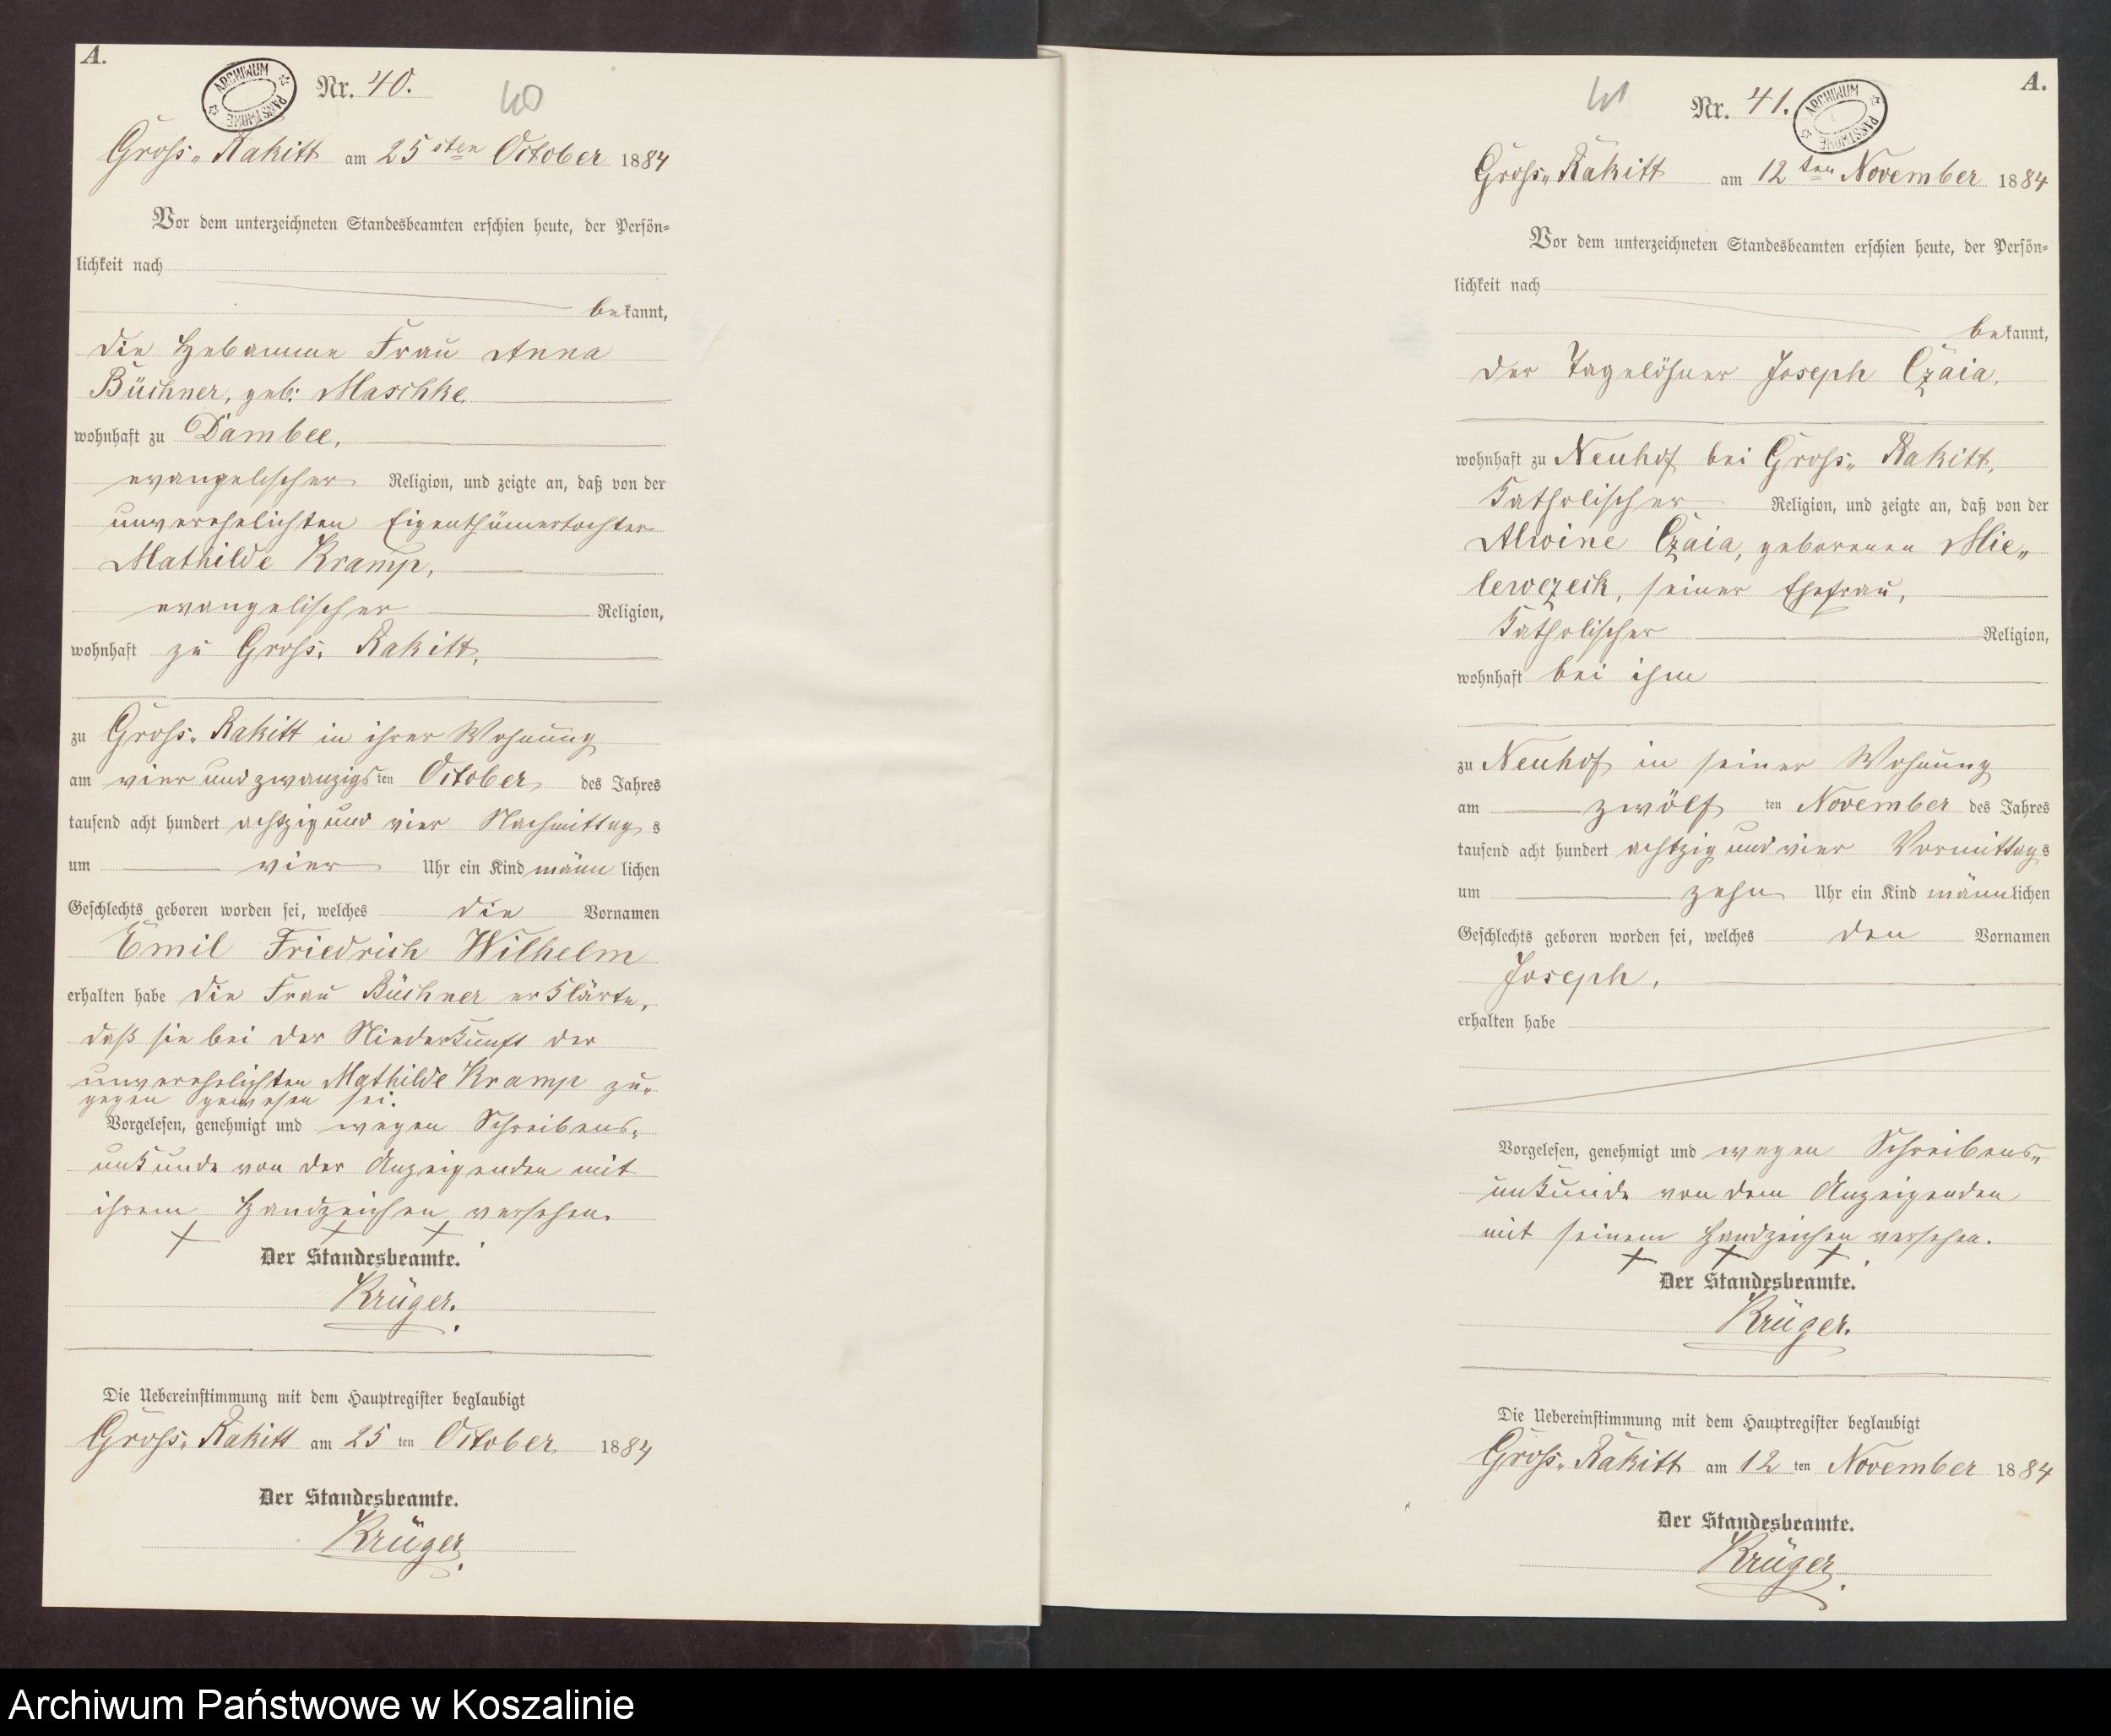 A.
ARCHIWUM PAŃSTWOWE
Nr. 40.
40
Gross„ Rakitt am 25 sten October 1884
Vor dem unterzeichneten Standesbeamten erschien heute, der Persön=
lichkeit nach
bekannt,
die Hebamme Frau Anna
Büchner, geb: Maschke,
wohnhaft zu Dambee,
evangelischer Religion, und zeigte an, daß von der
unverehelichten Eigenthümertochter
Mathilde Kramp,
evangelischer Religion,
wohnhaft zu Gross„ Rakitt,
zu Gross„ Rakitt in ihrer Wohnung
am vier und zwanzigsten October des Jahres
tausend acht hundert achtzig und vier Nachmittags
um vier Uhr ein Kind männlichen
Geschlechts geboren worden sei, welches die Vornamen
Emil Friedrich Wilhelm
erhalten habe die Frau Büchner erklärte,
daß sie bei der Niederkunft der
unverehelichten Mathilde Kramp zu„
gegen gewesen sei.
Vorgelesen, genehmigt und wegen Schreibens„
unkunde von der Anzeigenden mit
ihrem Handzeichen versehen.
+ + +
Der Standesbeamte.
Krüger.
Die Uebereinstimmung mit dem Hauptregister beglaubigt
Gross„ Rakitt am 25 ten October 1884
Der Standesbeamte.
Krüger.
A.
41
Nr. 41.
ARCHIWUM PAŃSTWOWE
Gross„ Rakitt am 12 ten November 1884
Vor dem unterzeichneten Standesbeamten erschien heute, der Persön=
lichkeit nach
bekannt,
der Tagelöhner Joseph Czaia,
wohnhaft zu Neuhof bei Gross„ Rakitt,
katholischer Religion, und zeigte an, daß von der
Alwine Czaia, geborenen Mie„
lewczeck, seiner Ehefrau,
katholischer Religion,
wohnhaft bei ihm
zu Neuhof in seiner Wohnung
am zwölf ten November des Jahres
tausend acht hundert achtzig und vier Vormittags
um zehn Uhr ein Kind männlichen
Geschlechts geboren worden sei, welches den Vornamen
Joseph,
erhalten habe
Vorgelesen, genehmigt und wegen Schreibens„
unkunde von dem Anzeigenden
mit seinem Handzeichen versehen.
+ + +
Der Standesbeamte.
Krüger.
Die Uebereinstimmung mit dem Hauptregister beglaubigt
Gross„ Rakitt am 12 ten November 1884
Der Standesbeamte.
Krüger.
Archiwum Państwowe w Koszalinie